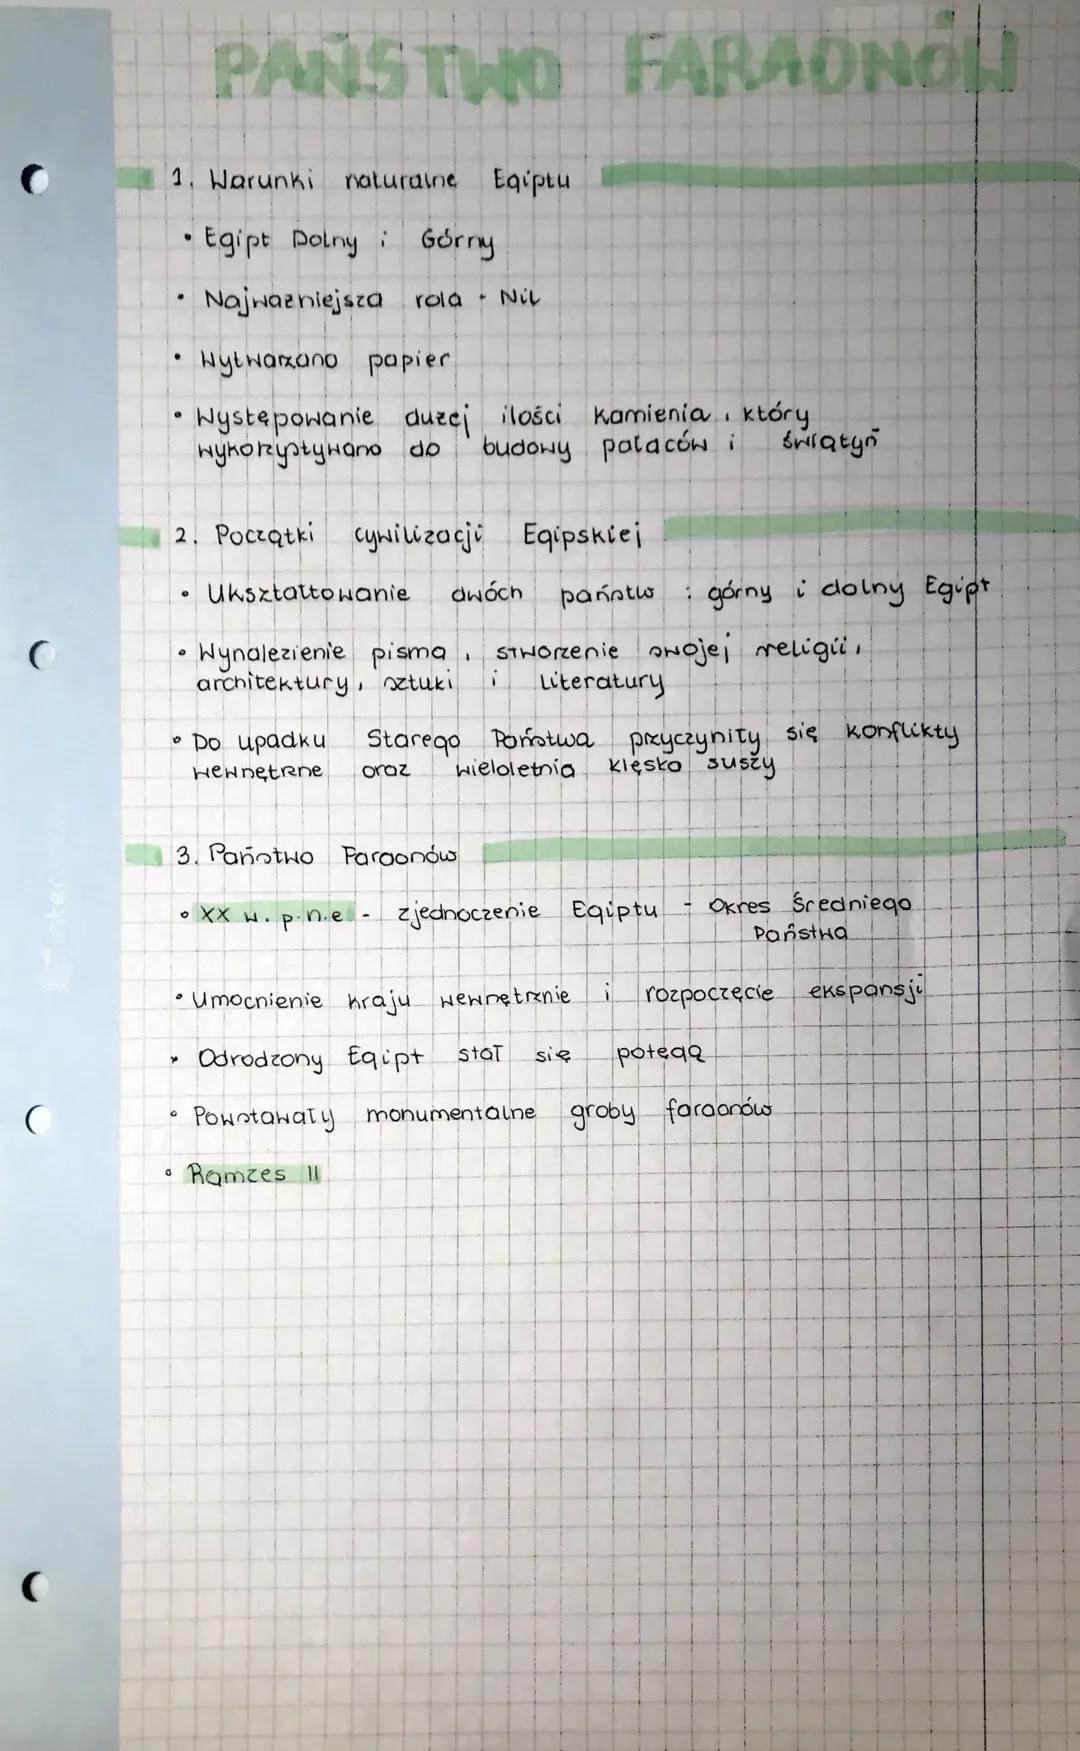 PAŃSTWO FARAONÓW
1. Warunki naturalne Egiptu
• Egipt Dolny i Górny
• Najważniejsza rola - Nil
• Wytwarzano papier
• Występowanie dużej ilości kamienia, który
wykorzystywano do budowy pałaców i świątyń
2. Początki cywilizacji Egipskiej
• Ukształtowanie dwóch państw : górny i dolny Egipt
• Wynalezienie pisma, stworzenie swojej religii,
architektury, sztuki i literatury
• Do upadku Starego Państwa przyczyniły się konflikty
wewnętrzne oraz wieloletnia klęska suszy
3. Państwo Faraonów
• XX w. p.n.e - zjednoczenie Egiptu - Okres Średniego
Państwa
• Umocnienie kraju wewnętrznie i rozpoczęcie ekspansji
• Odrodzony Egipt stał się potęgą
• Powstawały monumentalne groby faraonów
• Ramzes II